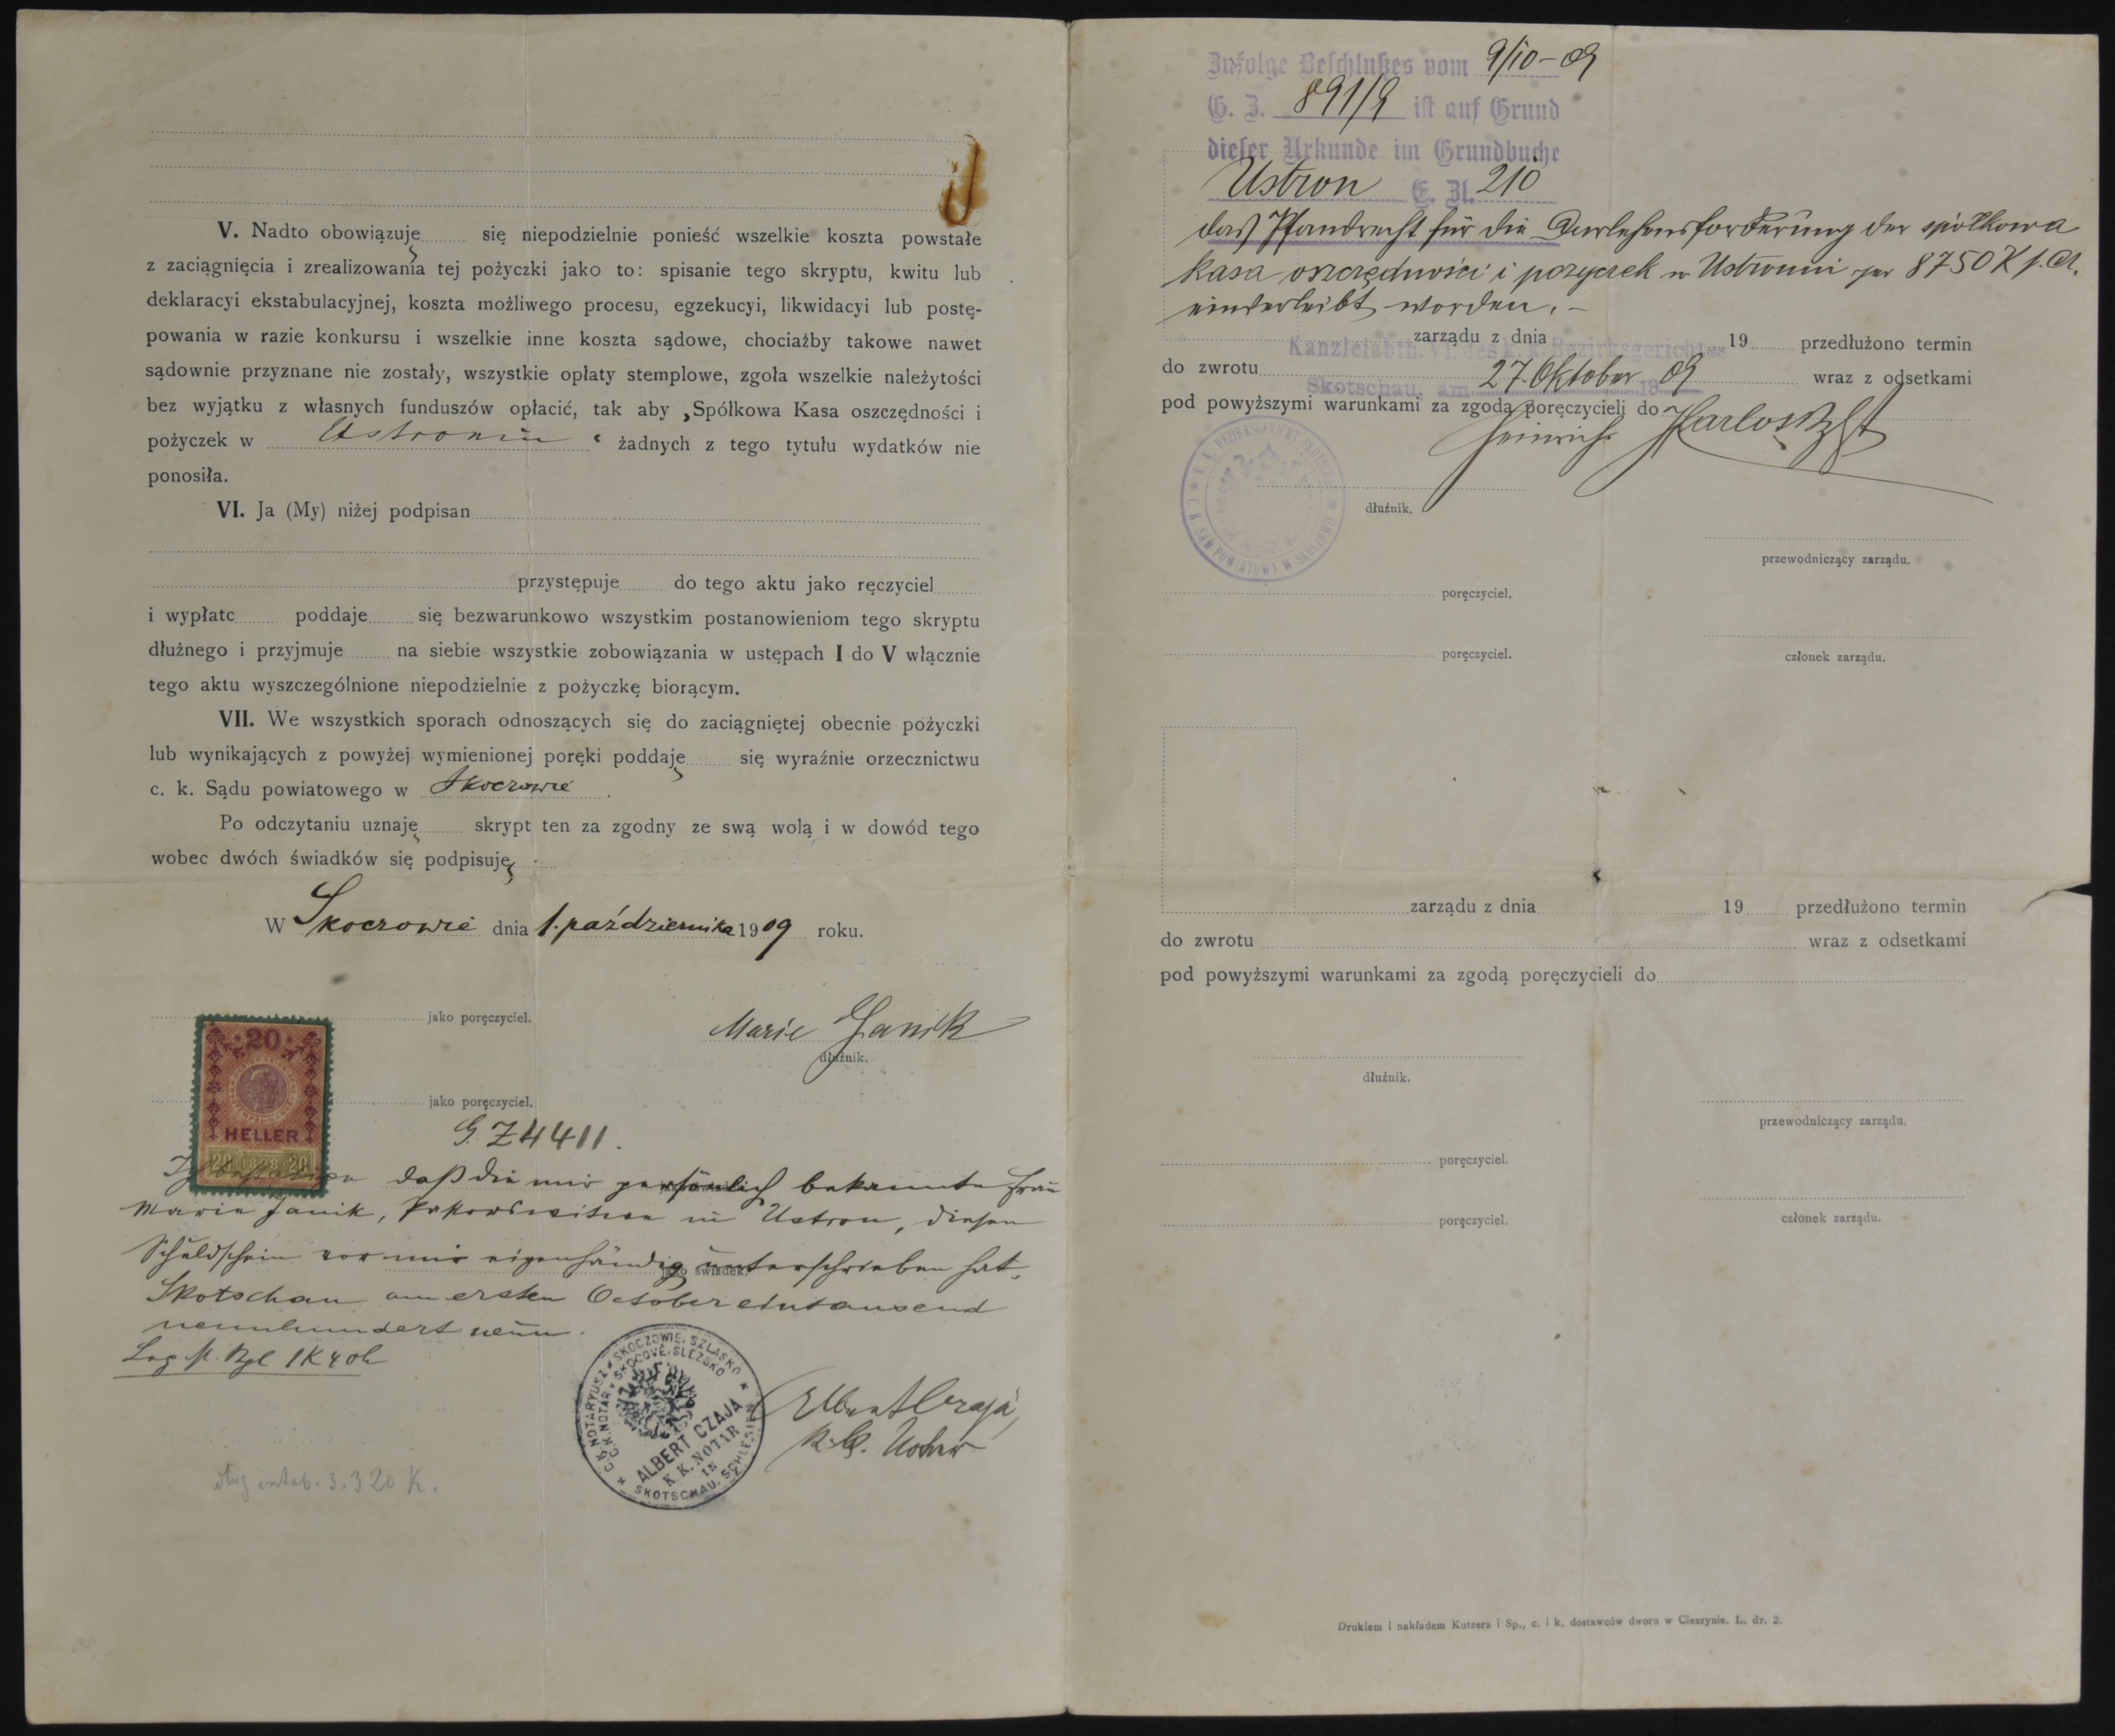 V. Nadto obowiązuję się niepodzielnie ponieść wszelkie koszta powstałe
z zaciągnięcia i zrealizowania tej pożyczki jako to: spisanie tego skryptu, kwitu lub
deklaracyi ekstabulacyjnej, koszta możliwego procesu, egzekucyi, likwidacyi lub postę-
powania w razie konkursu i wszelkie inne koszta sądowe, chociażby takowe nawet
sądownie przyznane nie zostały, wszystkie opłaty stemplowe, zgoła wszelkie należytości
bez wyjątku z własnych funduszów opłacić, tak aby „Spółkowa Kasa oszczędności i
pożyczek w Ustroniu“ żadnych z tego tytułu wydatków nie
ponosiła.
VI. Ja (My) niżej podpisan
przystępuje do tego aktu jako ręczyciel
i wypłatc poddaje się bezwarunkowo wszystkim postanowieniom tego skryptu
dłużnego i przyjmuje na siebie wszystkie zobowiązania w ustępach I do V włącznie
tego aktu wyszczególnione niepodzielnie z pożyczkę biorącym.
VII. We wszystkich sporach odnoszących się do zaciągniętej obecnie pożyczki
lub wynikających z powyżej wymienionej poręki poddaję się wyraźnie orzecznictwu
c. k. Sądu powiatowego w Skoczowie.
Po odczytaniu uznaję skrypt ten za zgodny ze swą wolą i w dowód tego
wobec dwóch świadków się podpisuję
W Skoczowie dnia 1. października 1909 roku.
jako poręczyciel.
Marie Janik
dłużnik.
20
HELLER
20 1898 20
jako poręczyciel.
G. Z 4411.
daß die mir persönlich bekannte Frau
Marie Janik, in Ustron, diesen
Schuldschein vor mir eigenhändig unterschrieben hat.
jako świadek.
Skotschau am ersten October eintausend
neunhundert neun.
1K 40h
C.K. NOTARYUSZ W SKOCZOWIE, SZLĄSKO
C.K. NOTAR V SKOČOVĚ, SLEZSKO
ALBERT CZAJA
K.K. NOTAR
IN
SKOTSCHAU, SCHLESIEN
Albert Czaja
k.k. Notar
dług intab. 3.320 K.
Zufolge Beschlußes vom 9/10-09
G. Z. 891/9 ist auf Grund
dieser Urkunde im Grundbuche
Ustron E. Zl. 210
das Pfandrecht für die Darlehensforderung der spółkowa
kasa oszczędności i pożyczek w Ustroniu per 8750 K s. A.
einverleibt worden. –
zarządu z dnia 19 przedłużono termin
Kanzleiabth. VI. des k. k. Bezirksgerichtes
do zwrotu wraz z odsetkami
Skotschau, am 27. Oktober 1909
pod powyższymi warunkami za zgodą poręczycieli do
Heinrich
K. K. BEZIRKSGERICHT SKOTSCHAU
C. K. SĄD POWIATOWY W SKOCZOWIE
dłużnik.
przewodniczący zarządu.
poręczyciel.
poręczyciel.
członek zarządu.
zarządu z dnia 19 przedłużono termin
do zwrotu wraz z odsetkami
pod powyższymi warunkami za zgodą poręczycieli do
dłużnik.
przewodniczący zarządu.
poręczyciel.
członek zarządu.
poręczyciel.
Drukiem i nakładem Kutzera i Sp., c. i k. dostawców dworu w Cieszynie. L. dr. 2.